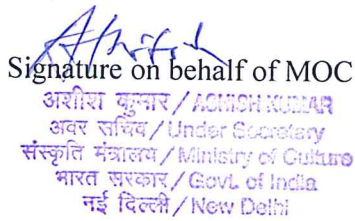 Signature on behalf of MOC
अशीश कुमार / ASHISH KUMAR
अवर सचिव / Under Secretary
संस्कृति मंत्रालय / Ministry of Culture
भारत सरकार / Govt. of India
नई दिल्ली / New Delhi